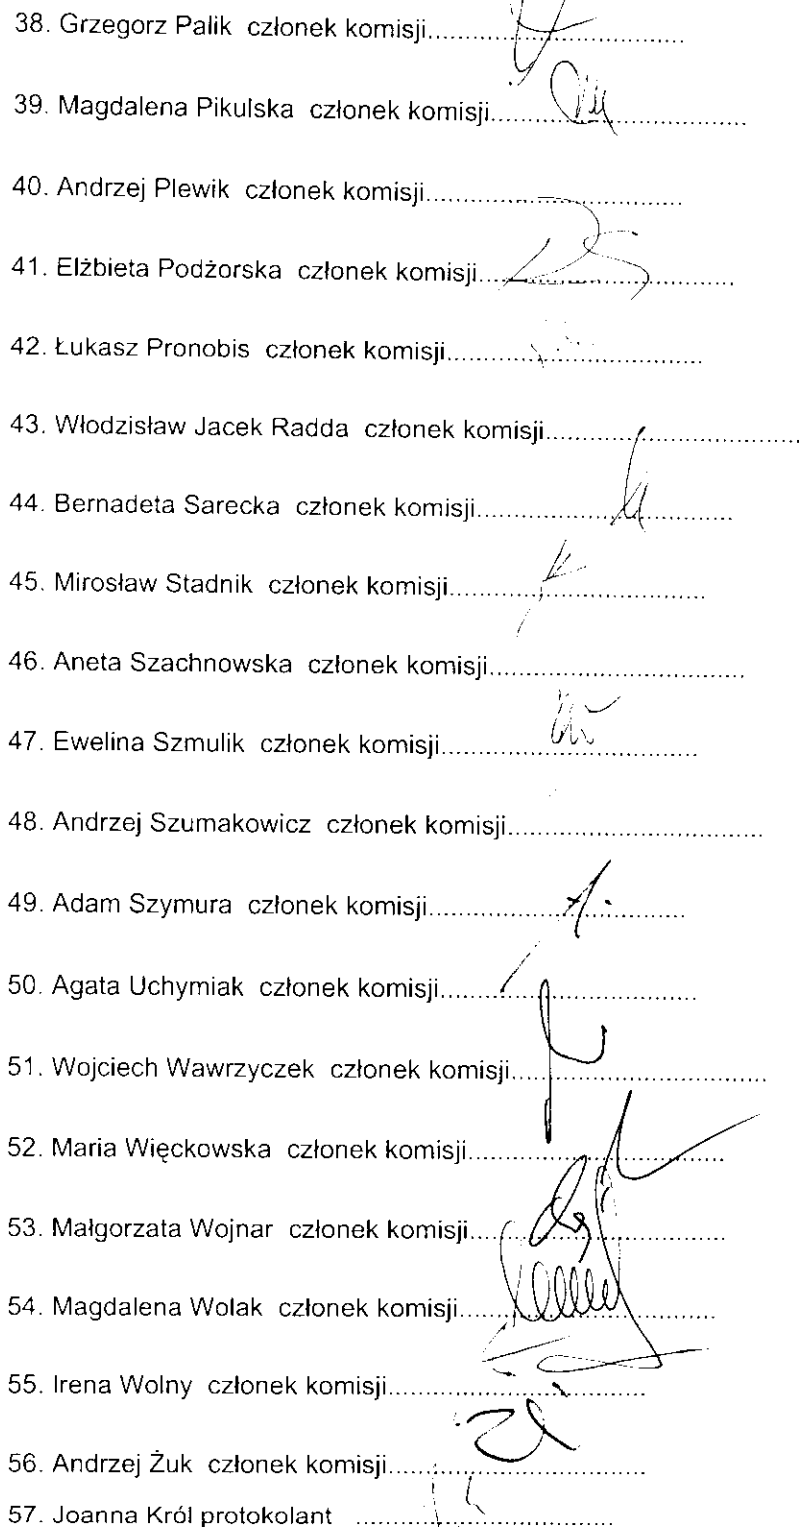 38. Grzegorz Palik członek komisji..........................................
39. Magdalena Pikulska członek komisji..........................................
40. Andrzej Plewik członek komisji..........................................
41. Elżbieta Podżorska członek komisji..........................................
42. Łukasz Pronobis członek komisji..........................................
43. Włodzisław Jacek Radda członek komisji..........................................
44. Bernadeta Sarecka członek komisji..........................................
45. Mirosław Stadnik członek komisji..........................................
46. Aneta Szachnowska członek komisji..........................................
47. Ewelina Szmulik członek komisji..........................................
48. Andrzej Szumakowicz członek komisji..........................................
49. Adam Szymura członek komisji..........................................
50. Agata Uchymiak członek komisji..........................................
51. Wojciech Wawrzyczek członek komisji..........................................
52. Maria Więckowska członek komisji..........................................
53. Małgorzata Wojnar członek komisji..........................................
54. Magdalena Wolak członek komisji..........................................
55. Irena Wolny członek komisji..........................................
56. Andrzej Żuk członek komisji..........................................
57. Joanna Król protokolant ..........................................